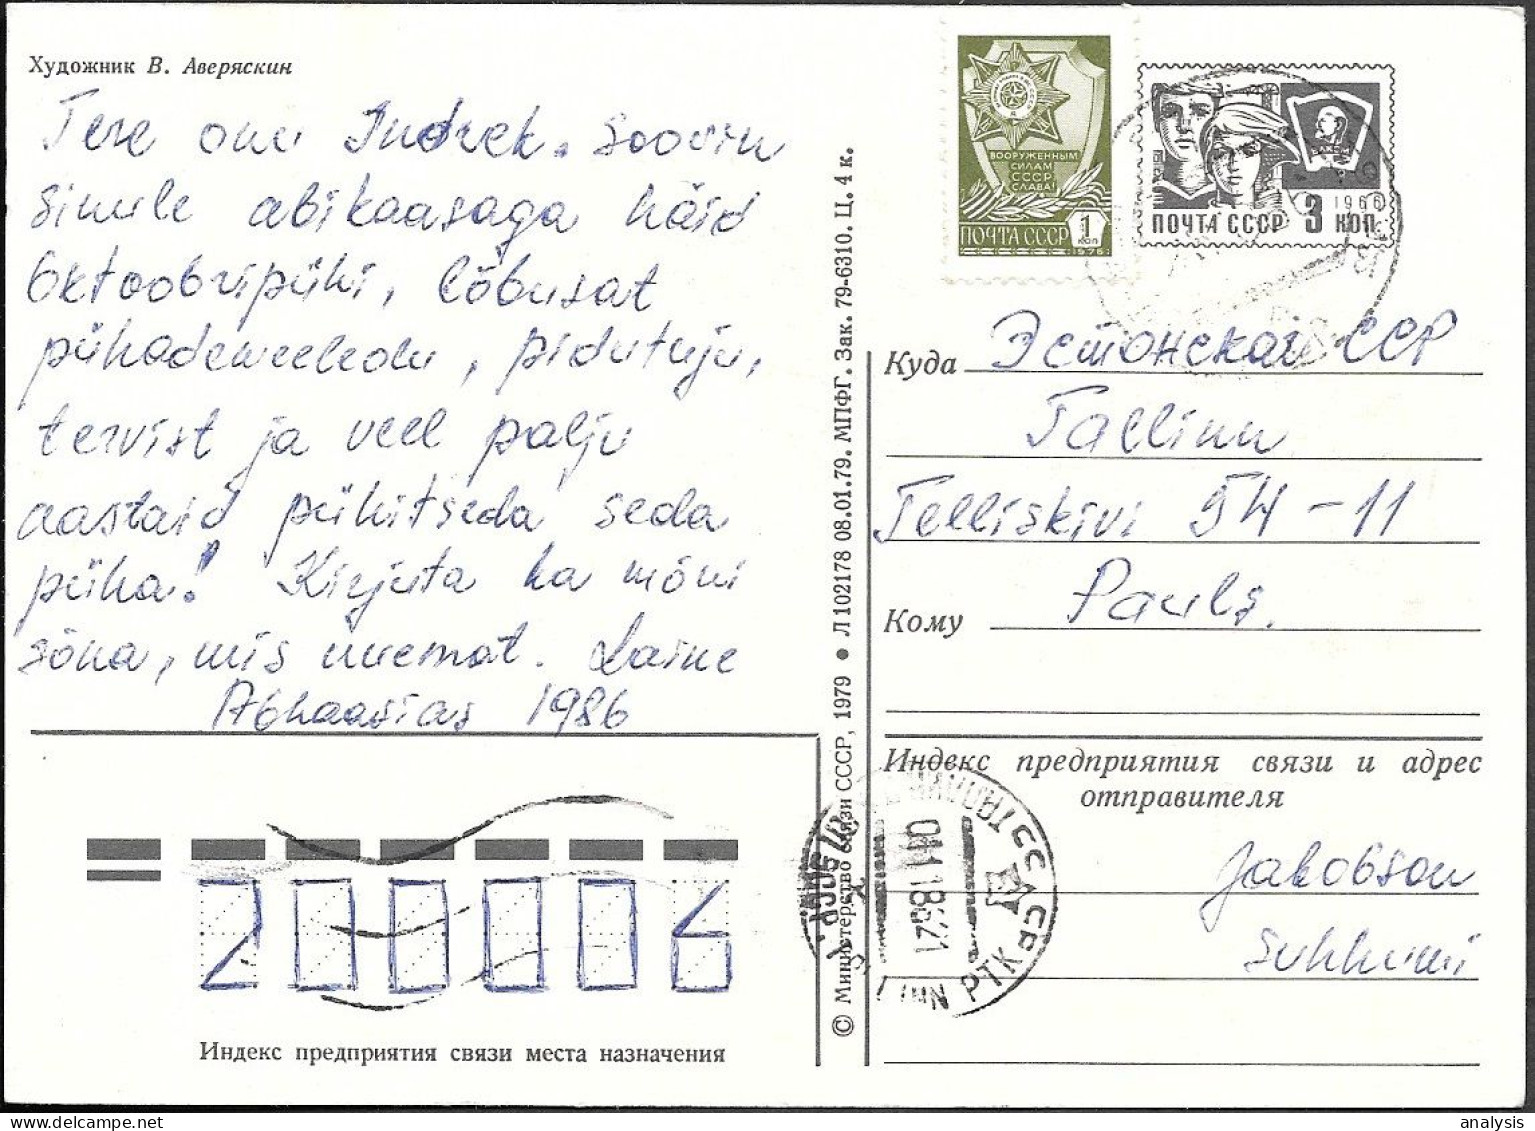 Художник В. Аверяскин
Tere onu Indrek. Soovin
Sinule abikaasaga häid
Oktoobripühi, lõbusat
pühademeeleolu, pidutuju,
tervist ja veel palju
aastaid pühitseda seda
püha! Kirjuta ka mõni
sõna, mis uuemat. Laine
Abhaasias 1986
200006
Индекс предприятия связи места назначения
© Министерство связи СССР, 1979 ● Л 102178 08.01.79. МПФГ. Зак. 79-6310. Ц. 4 к.
ВООРУЖЕННЫМ
СИЛАМ
СССР
СЛАВА!
1
коп
ПОЧТА СССР
1976
1966
ПОЧТА СССР 3 КОП
Куда Эстонская ССР
Tallinn
Telliskivi 54-11
Кому Pauls.
Индекс предприятия связи и адрес
отправителя
Jakobson
Suhhumi
04118621
TALLINN PTK